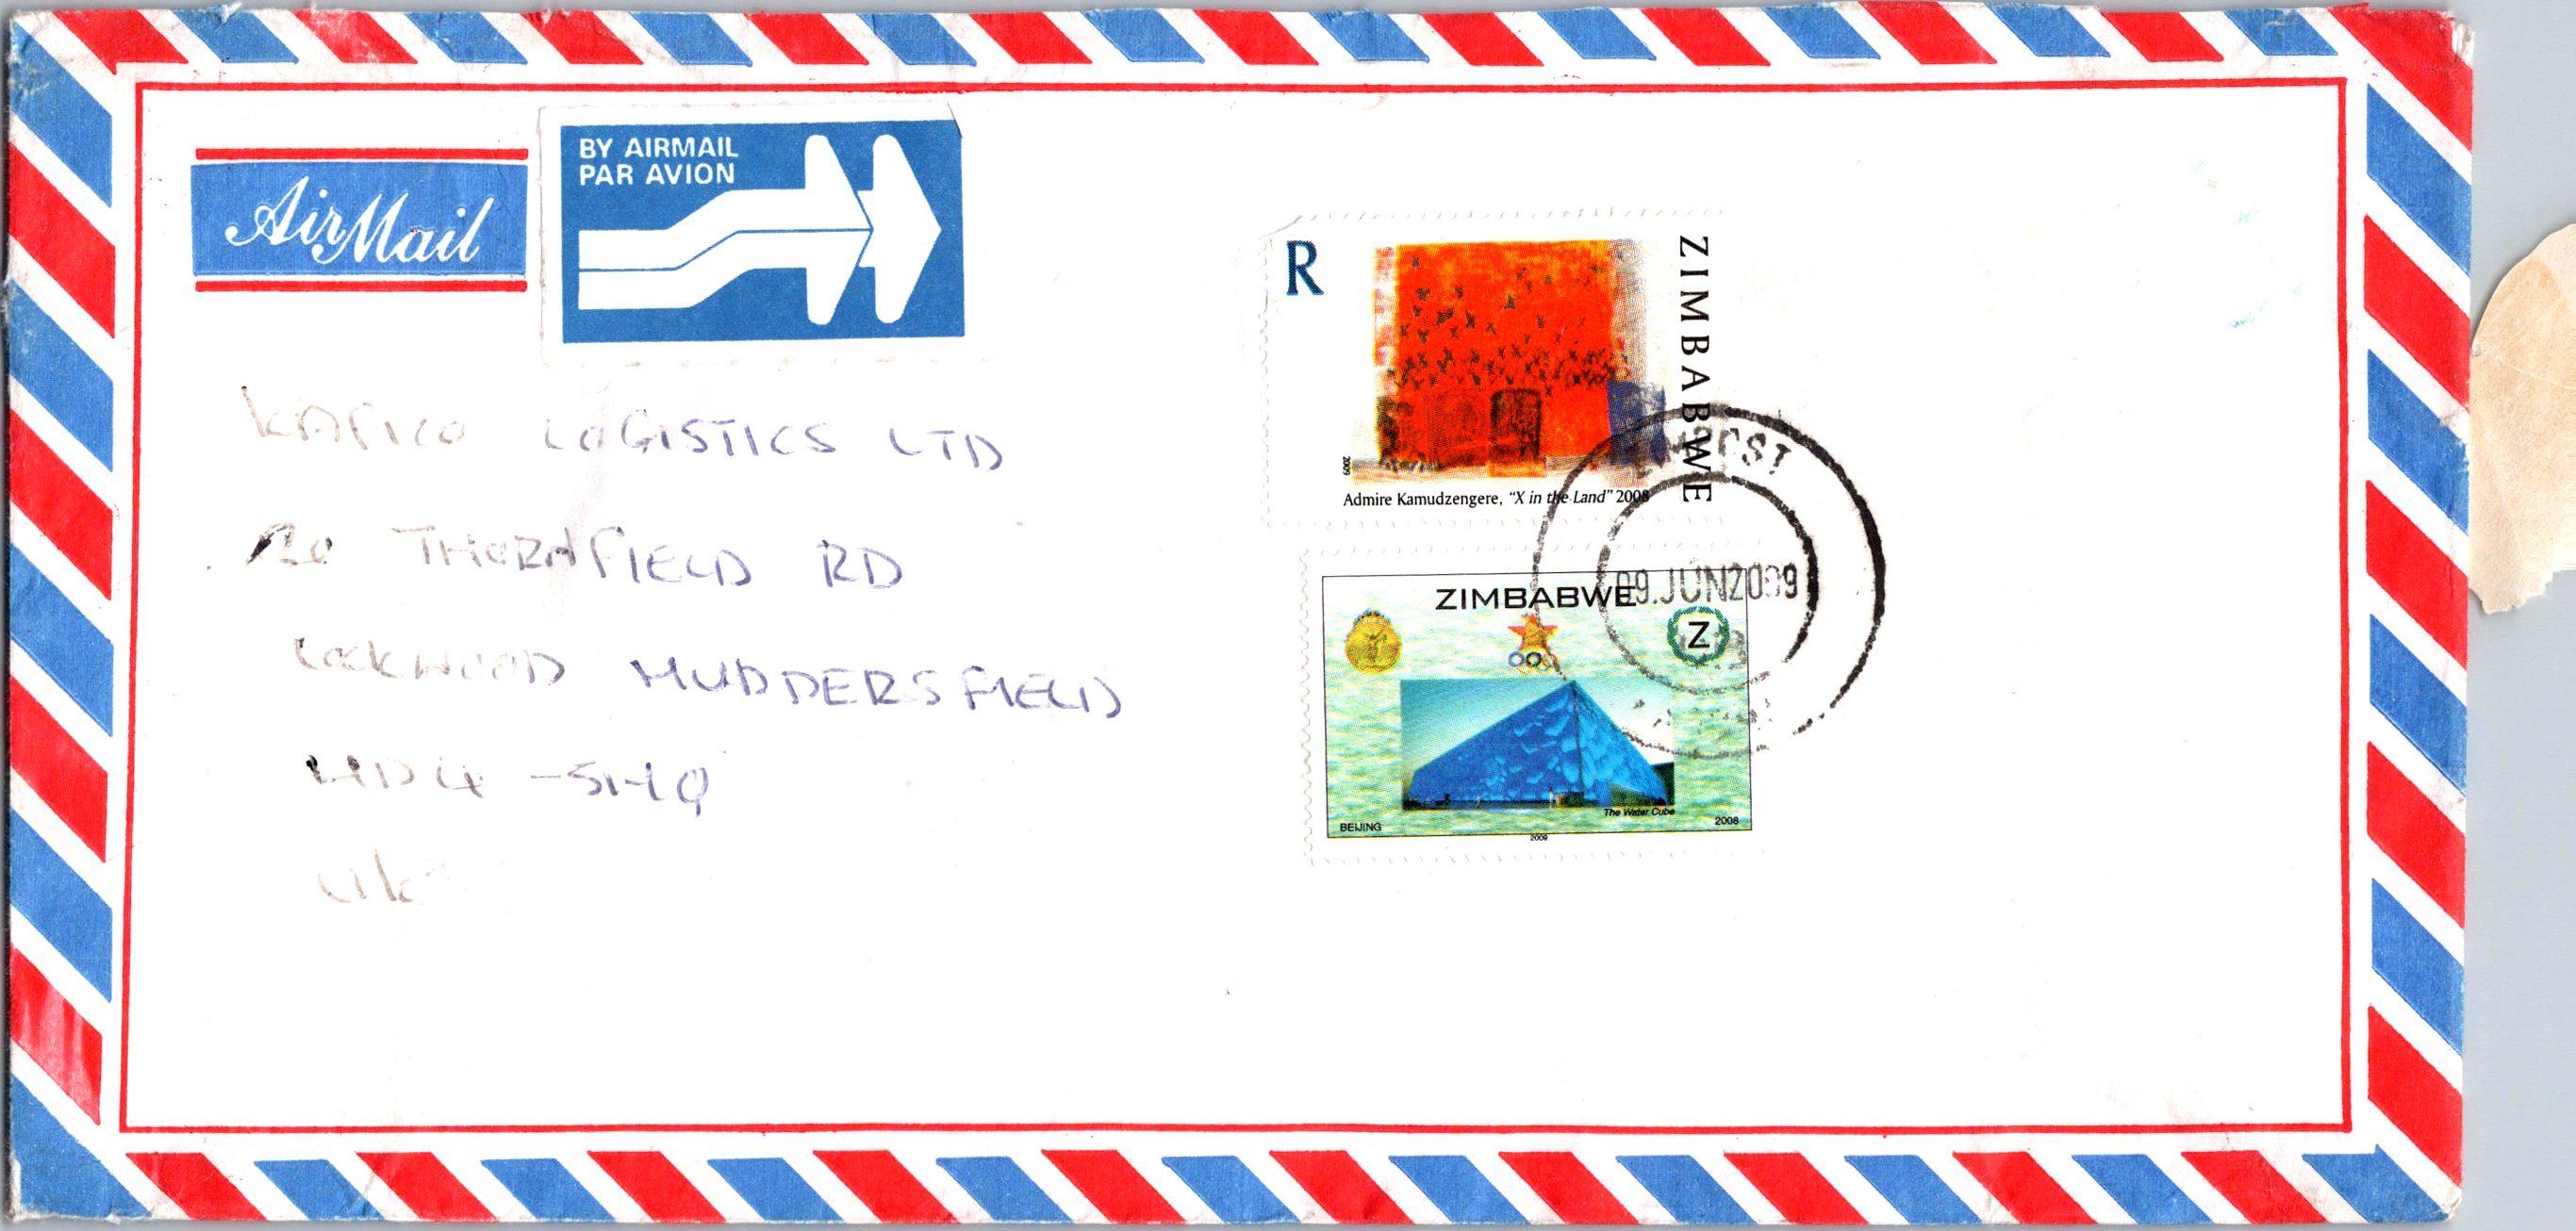 AirMail
BY AIRMAIL
PAR AVION
LOGISTICS LTD
THORNFIELD RD
LOCKWOOD HUDDERSFIELD
HD4 -5HQ
UK
R
ZIMBABWE
2009
Admire Kamudzengere, "X in the Land" 2008
09.JUN2009
ZIMBABWE
Z
The Water Cube
BEIJING
2008
2009